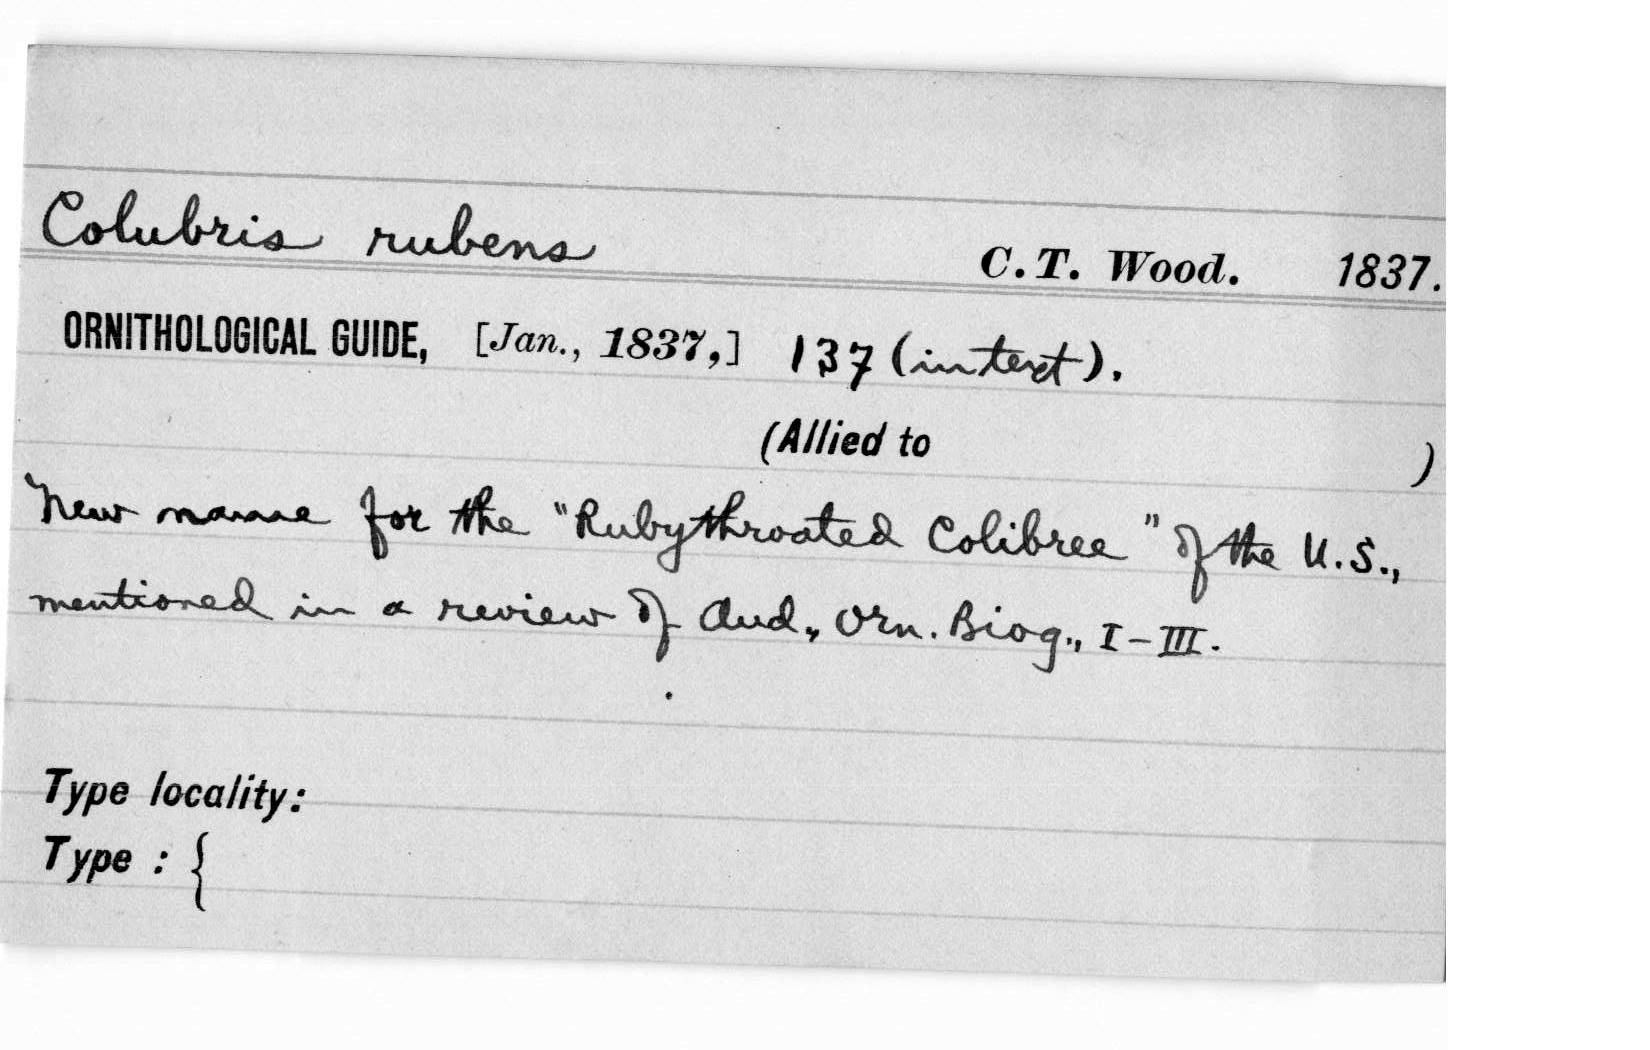 Colubris rubens C. T. Wood. 1837.
ORNITHOLOGICAL GUIDE, [Jan., 1837,] 137 (in text).
(Allied to )
New name for the "Rubythroated Colibree" of the U.S.,
mentioned in a review of Aud., Orn. Biog., I-III.
Type locality:
Type : {